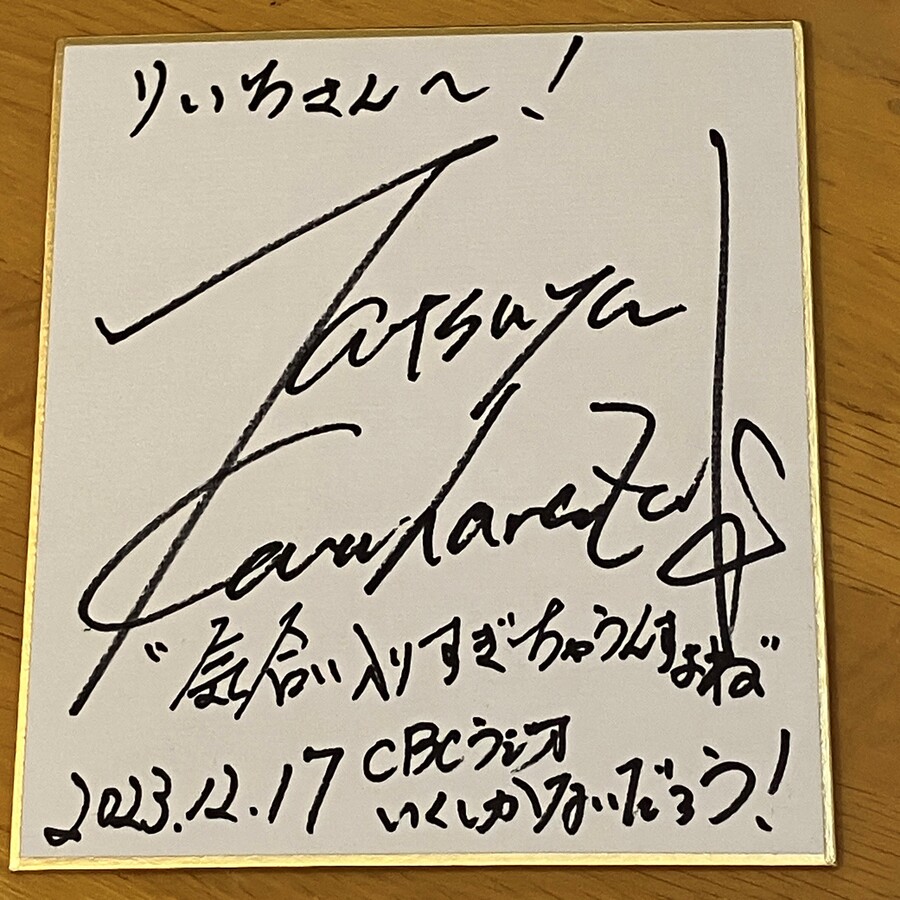 りいちさん〜!
Tatsuya
Kawarazaki
"気合い入りすぎちゃうんすよね"
2023.12.17 CBCラジオ
いくしかないだろう!